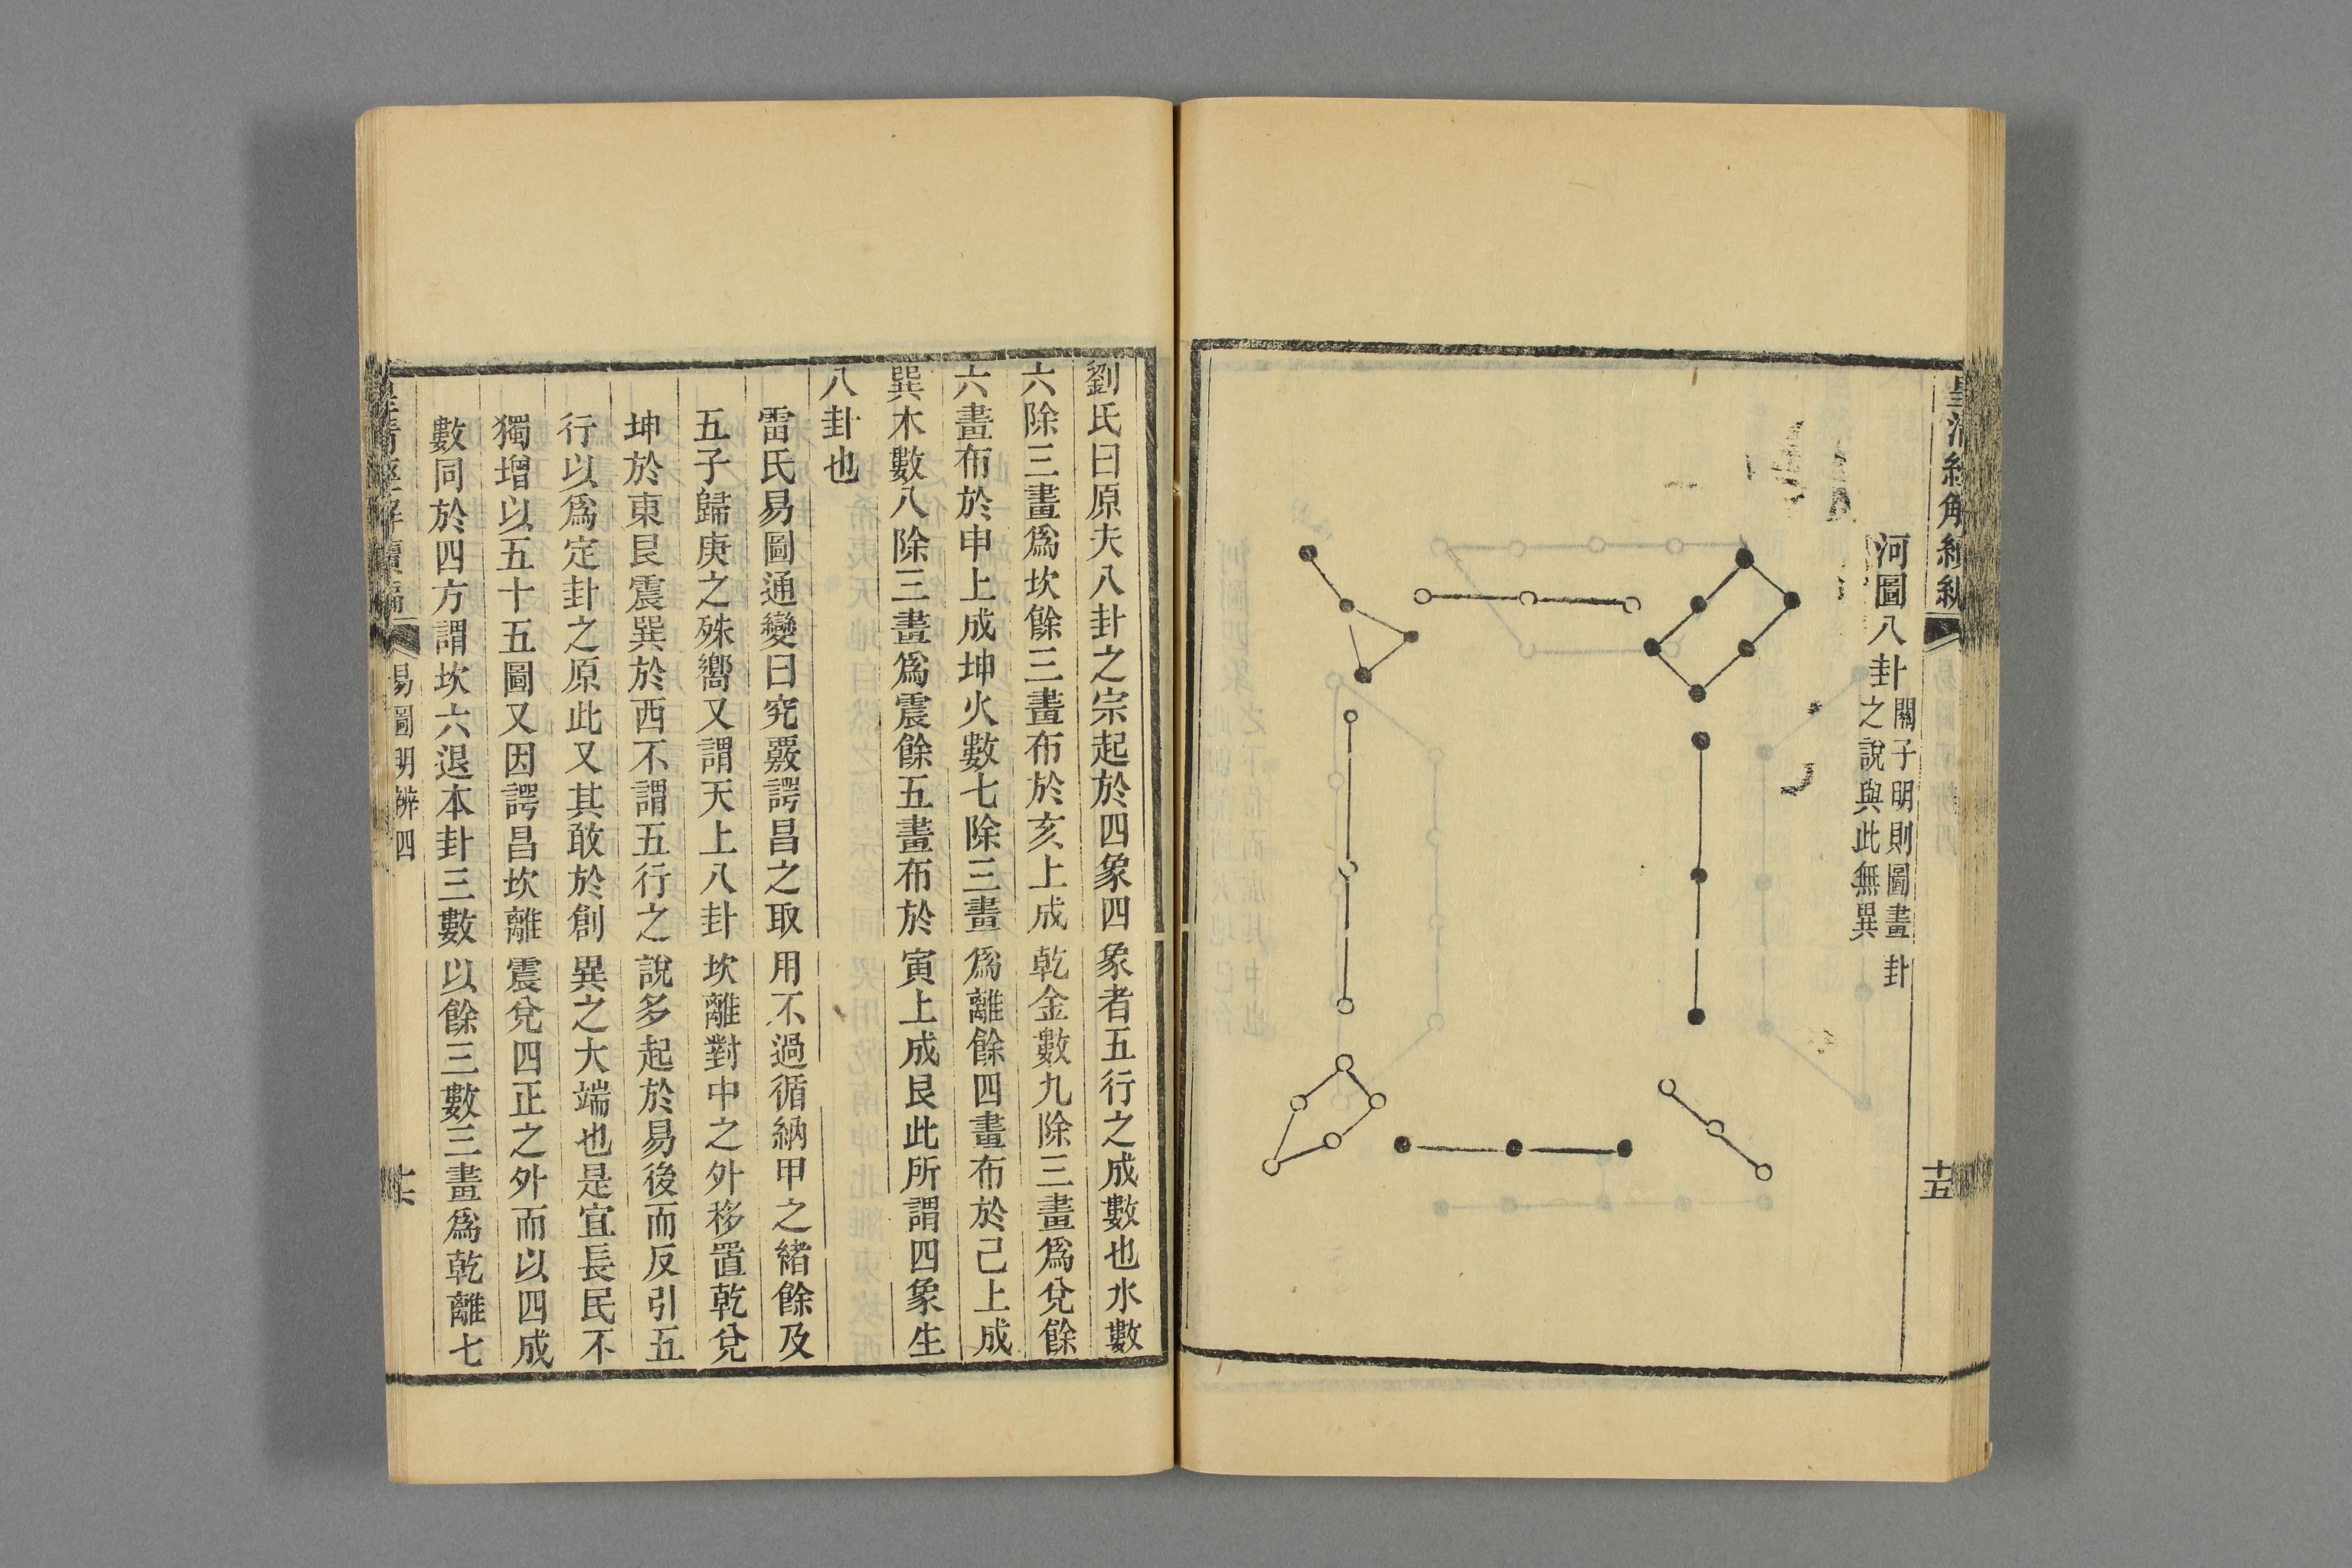 河圖八卦
關子明則圖畫卦
之說與此無異
十五
劉氏曰原夫八卦之宗起於四象四象者五行之成數也水數
六除三畫爲坎餘三畫布於亥上成乾金數九除三畫爲兌餘
六畫布於申上成坤火數七除三畫爲離餘四畫布於己上成
巽木數八除三畫爲震餘五畫布於寅上成艮此所謂四象生
八卦也
雷氏易圖通變曰究覈諤昌之取用不過循納甲之緒餘及
五子歸庚之殊嚮又謂天上八卦坎離對中之外移置乾兌
坤於東艮震巽於西不謂五行之說多起於易後而反引五
行以爲定卦之原此又其敢於創異之大端也是宜長民不
獨增以五十五圖又因諤昌坎離震兌四正之外而以四成
數同於四方謂坎六退本卦三數以餘三數三畫爲乾離七
易圖明辨四